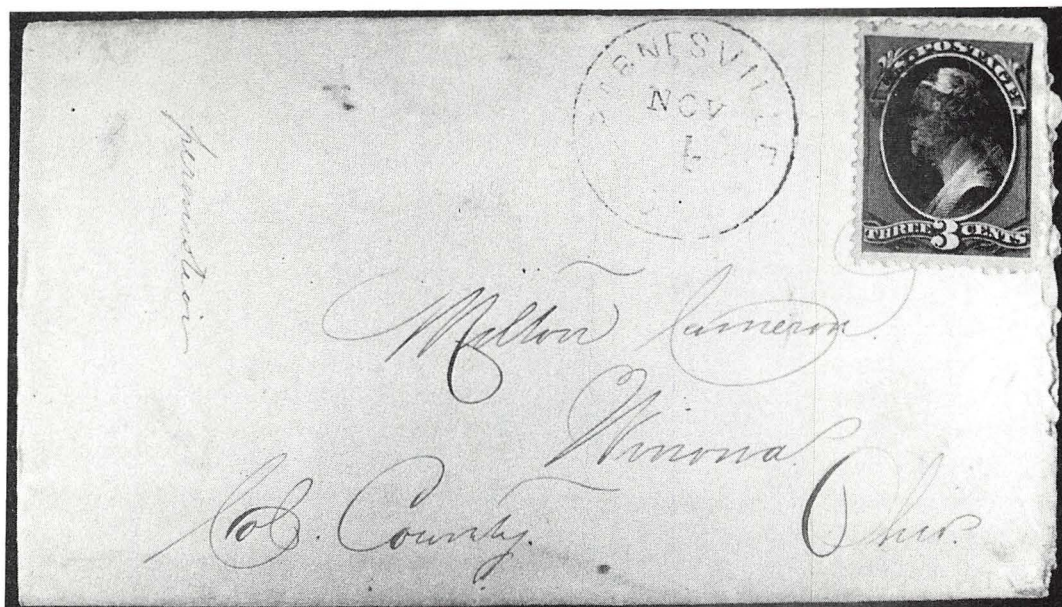 BARNESVILLE
NOV
U.S. POSTAGE
THREE 3 CENTS
permission
Milton Cameron
Winona
Col. County.
Ohio.